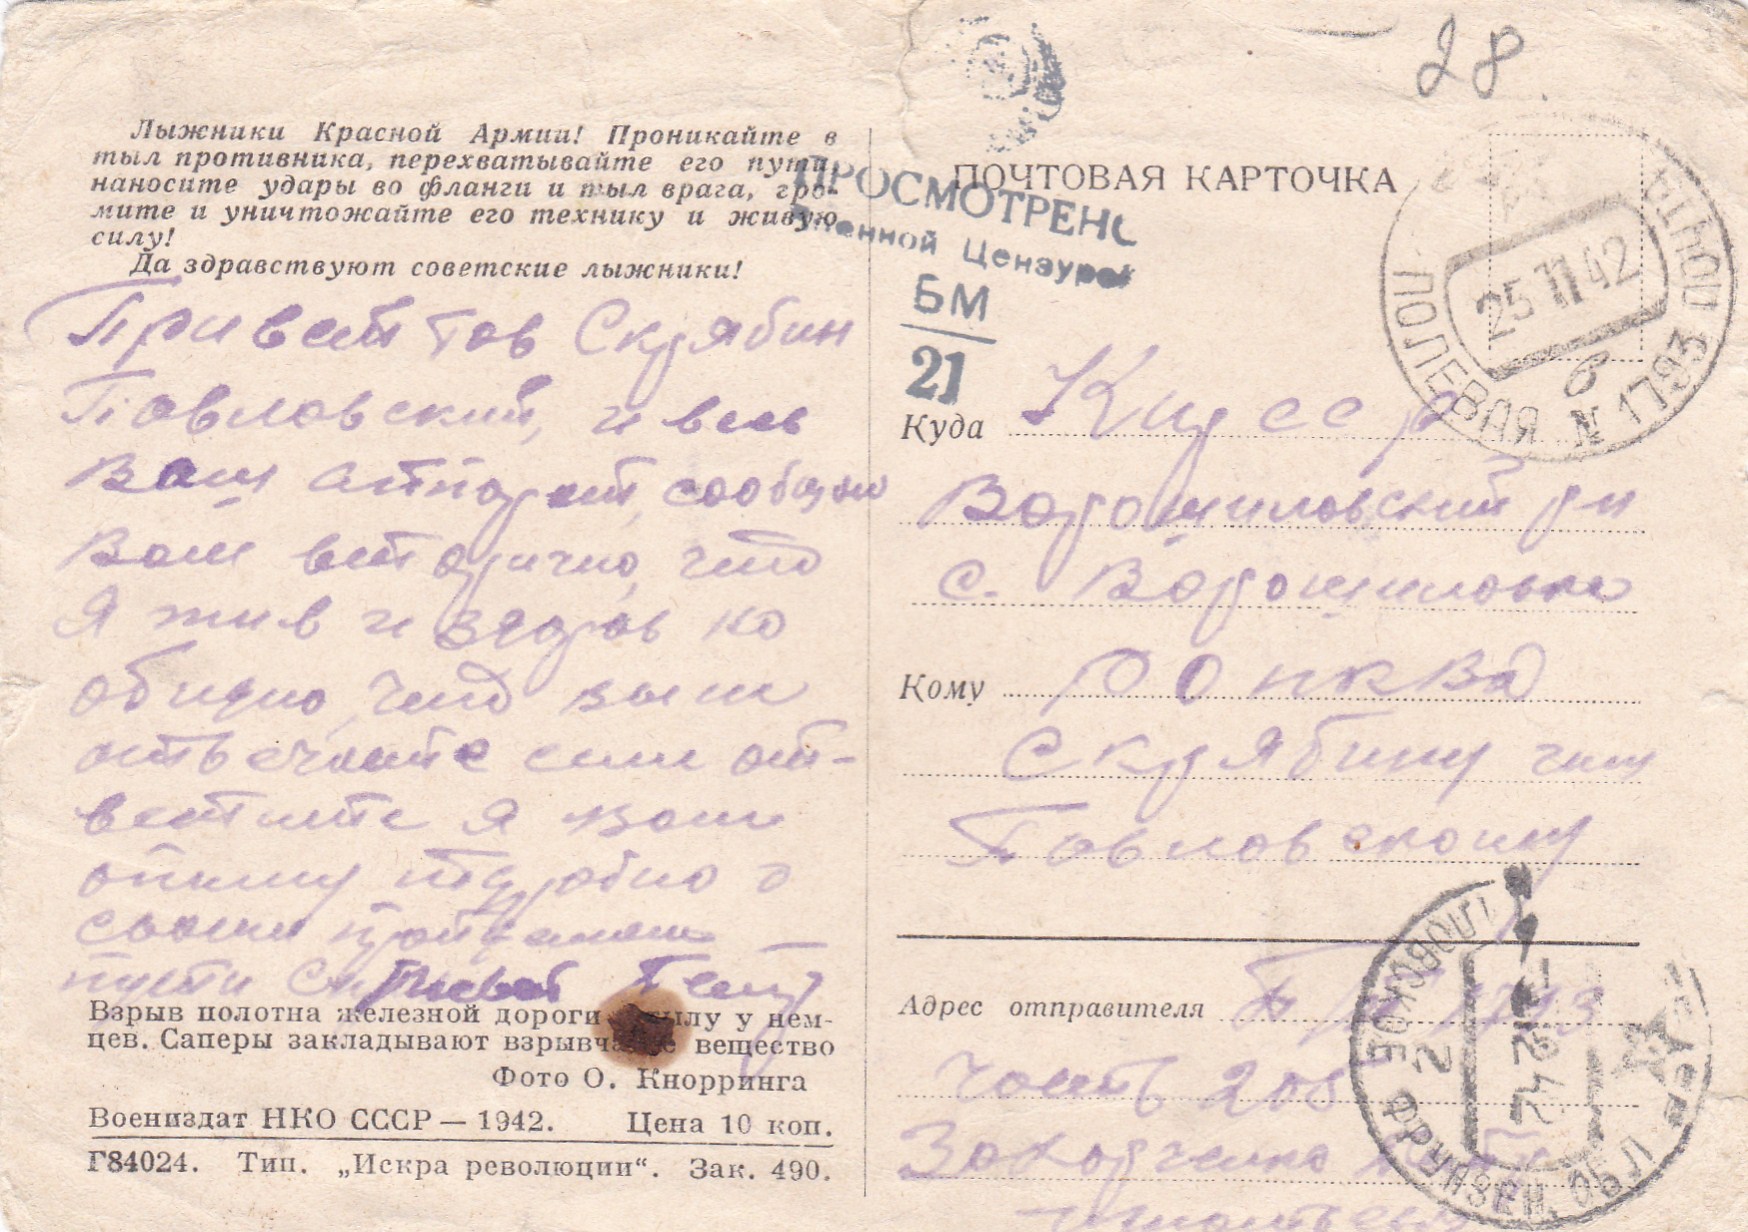 28
Лыжники Красной Армии! Проникайте в
тыл противника, перехватывайте его пути,
наносите удары во фланги и тыл врага, гро-
мите и уничтожайте его технику и живую
силу!
Да здравствуют советские лыжники!
Привет тов Скрябин
Павловский, и весь
Ваш аппарат, сообщаю
Вам вторично, что
Я жив и здоров но
обидно, что вы
отвечаете если от-
ветите я вам
опишу подробно о
своем пройденом
пути
Взрыв полотна железной дороги тылу у нем-
цев. Саперы закладывают взрывчатое вещество
Фото О. Кнорринга
Воениздат НКО СССР — 1942. Цена 10 коп.
Г84024. Тип. „Искра революции“. Зак. 490.
ПРОСМОТРЕНО
Военной Цензурой
БМ
21
ПОЧТОВАЯ КАРТОЧКА
ПОЛЕВАЯ ПОЧТА N 1793
25 11 42
в
Куда Кир ССР
Ворошиловский рн
с. Ворошиловка
Кому
Скрябину или
Павловскому
Адрес отправителя 1793
часть 205
Захарченко
ПОКРОВСКОЕ ФРУНЗЕН. ОБЛ.
42